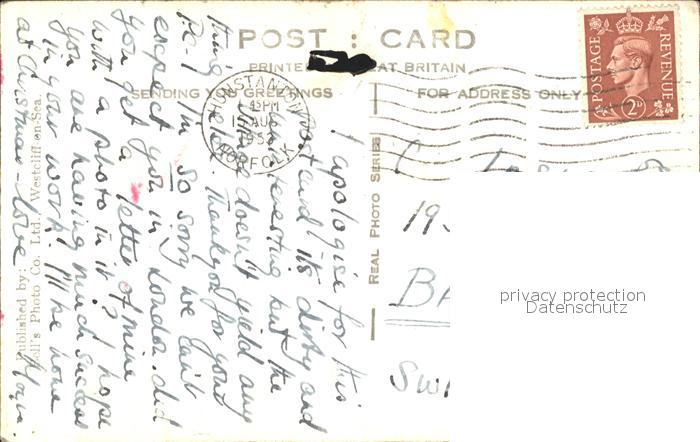 POST CARD
PRINTED GREAT BRITAIN
SENDING YOU GREETINGS
FOR ADDRESS ONLY
HUNSTANTON
NORFOLK
POSTAGE REVENUE
2D
REAL PHOTO SERIES
I apologise for this
postcard its dirty and
interesting but the
doesn't yield any
thing else. Thankyou for your
P.C. I'm so sorry we can't
expect you in London. did
you get a letter of mine
with a photo in it? I hope
you are having much success
in your work. I'll be home
at Christmas - love
Published by:
Bell's Photo Co. Ltd., Westcliff-on-Sea.
19
BA
SWI
privacy protection
Datenschutz